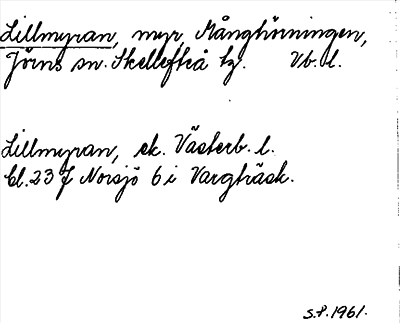 Lillmyran, myr Mångtörningen,
Jörns sn. Skellefteå tg. Vb. l.
Lillmyran, ek. Västerb. l.
bl. 23 J Norsjö 6 i Vargträsk.
S.P. 1961.